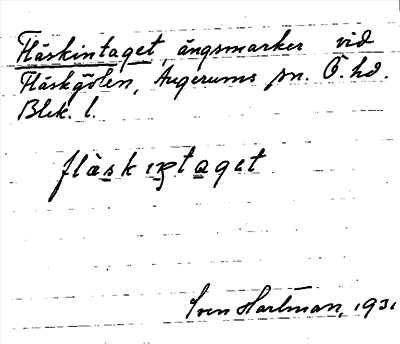 Fläskintaget, ängsmarker vid
Fläskgölen, Augerums sn. Ö. hd.
Blek. l.
fläskıntaget
Sven Hartman, 1931